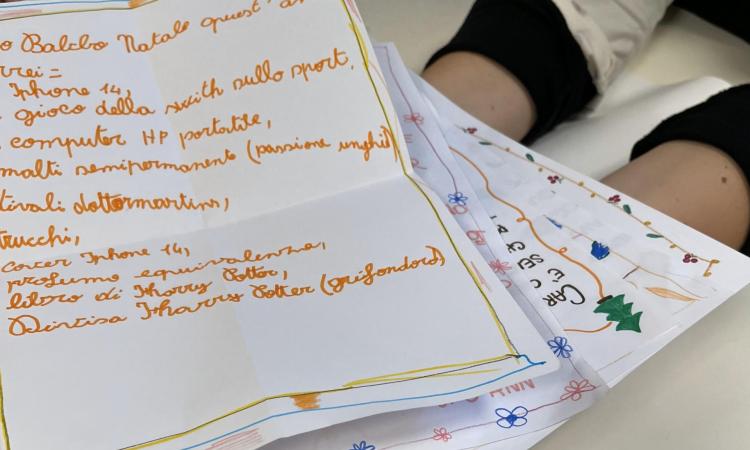 o Babbo Natale quest'an
rrei =
Iphone 14,
gioco della switch sullo sport,
computer HP portatile,
smalti semipermanente (passione unghie)
tivali dottormartins,
trucchi,
cover Iphone 14,
profumo equivalenza,
libro di Harry Potter,
Divisa Harry Potter (grifondoro)
CAR
È C
SEI